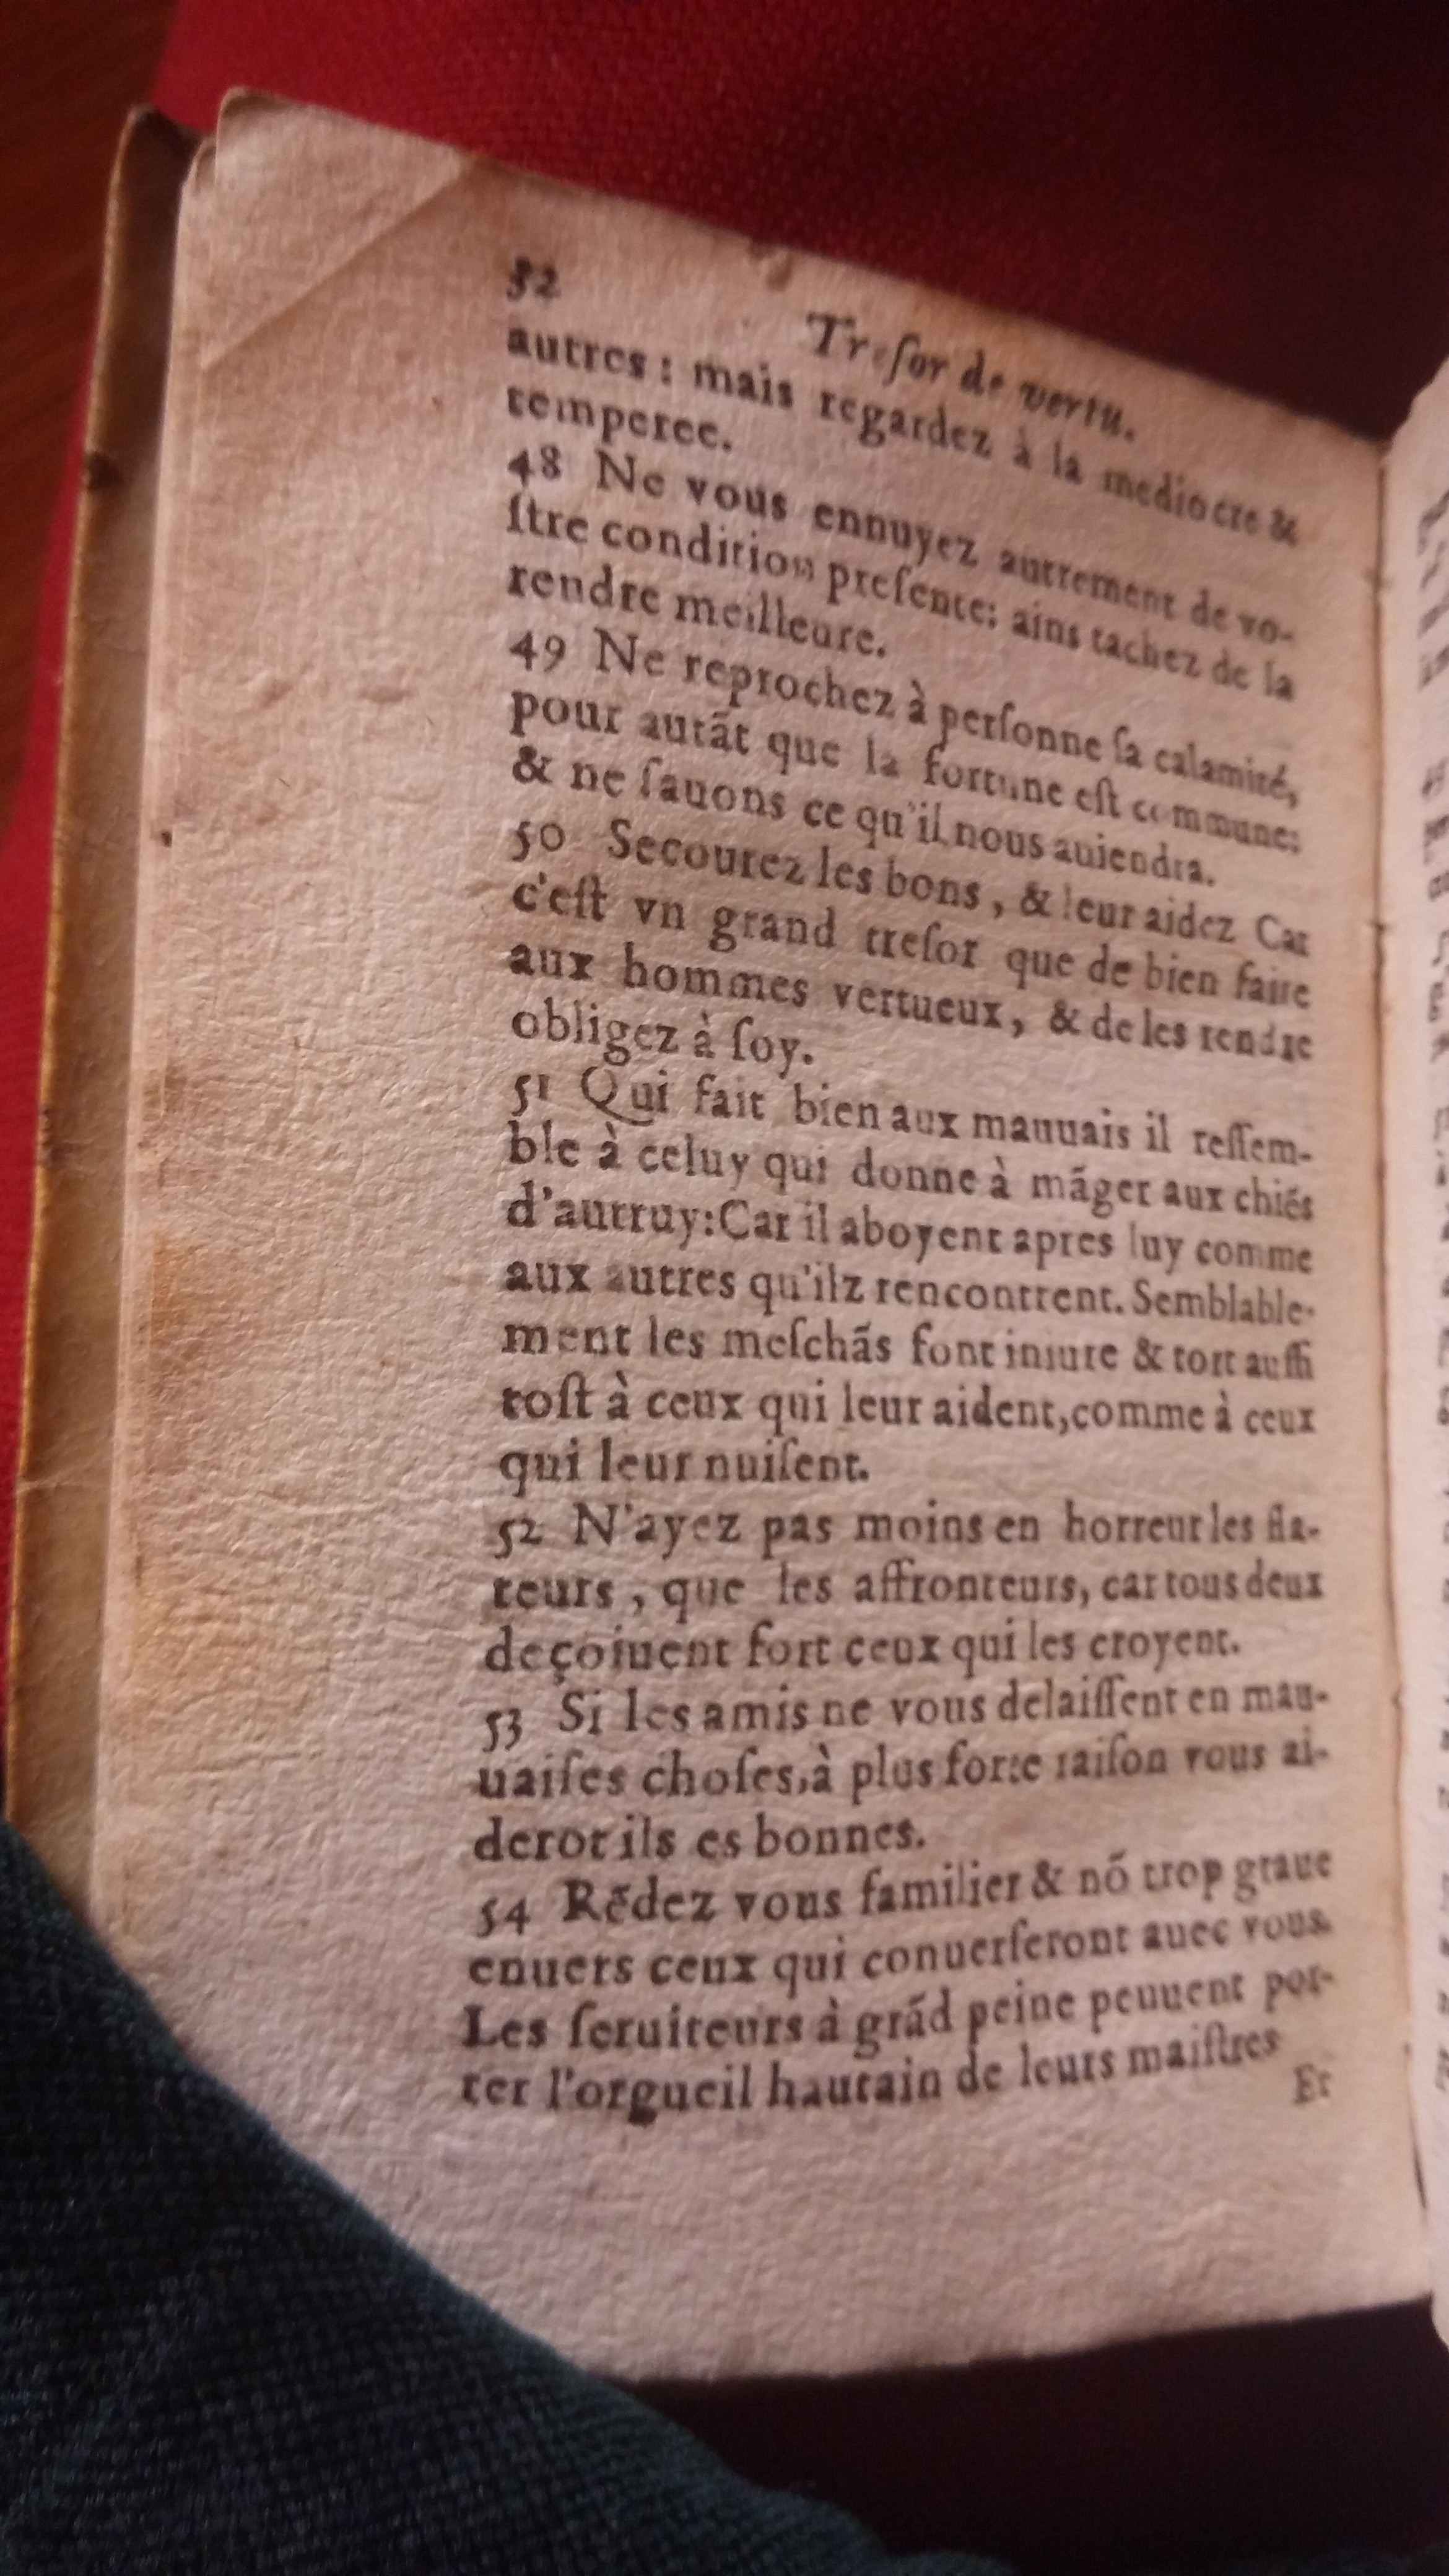 52
Treſor de vertu.
autres : mais regardez à la mediocre &
temperee.
48 Ne vous ennuyez autrement de vo-
ſtre condition preſente: ains tachez de la
rendre meilleure.
49 Ne reprochez à perſonne ſa calamité,
pour autãt que la fortune eſt commune:
& ne ſauons ce qu'il nous auiendra.
50 Secourez les bons, & leur aidez Car
c'eſt vn grand treſor que de bien faire
aux hommes vertueux, & de les rendre
obligez à ſoy.
51 Qui fait bien aux mauuais il reſſem-
ble à celuy qui donne à mãger aux chiés
d'autruy: Car il aboyent apres luy comme
aux autres qu'ilz rencontrent. Semblable-
ment les meſchãs font iniure & tort auſſi
toſt à ceux qui leur aident, comme à ceux
qui leur nuiſent.
52 N'ayez pas moins en horreur les fla-
teurs, que les affronteurs, car tous deux
deçoiuent fort ceux qui les croyent.
53 Si les amis ne vous delaiſſent en mau-
uaiſes choſes, à plus forte raiſon vous ai-
derot ils es bonnes.
54 Rẽdez vous familier & nõ trop graue
enuers ceux qui conuerſeront auec vous.
Les ſeruiteurs à grãd peine peuuent por-
ter l'orgueil hautain de leurs maiſtres
Et